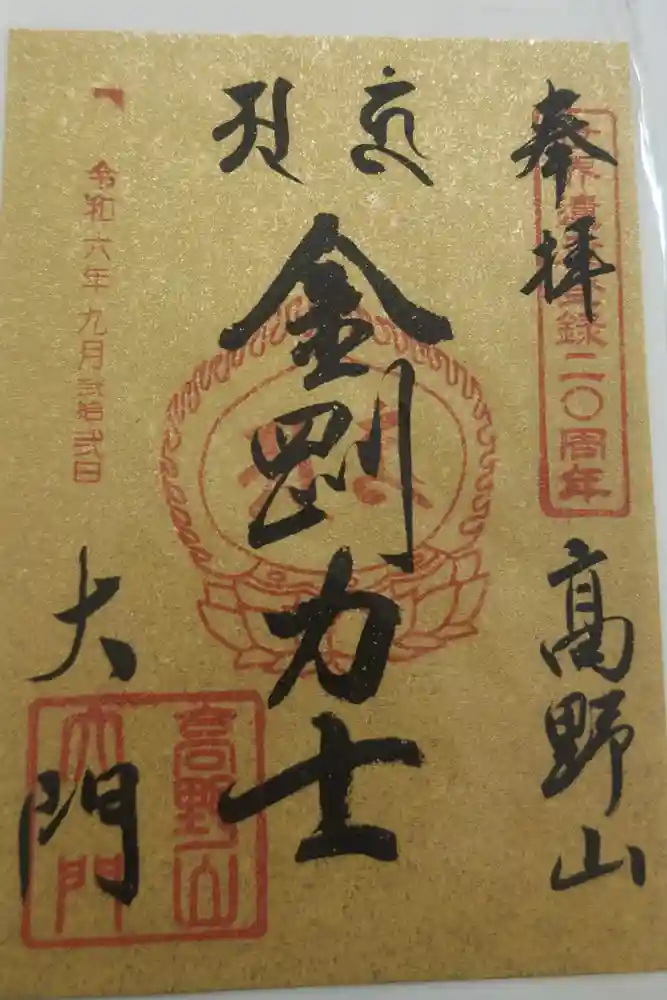 奉拝
世界遺産登録二〇周年
高野山
金剛力士
大門
令和六年九月弐拾弐日
高野山
大門